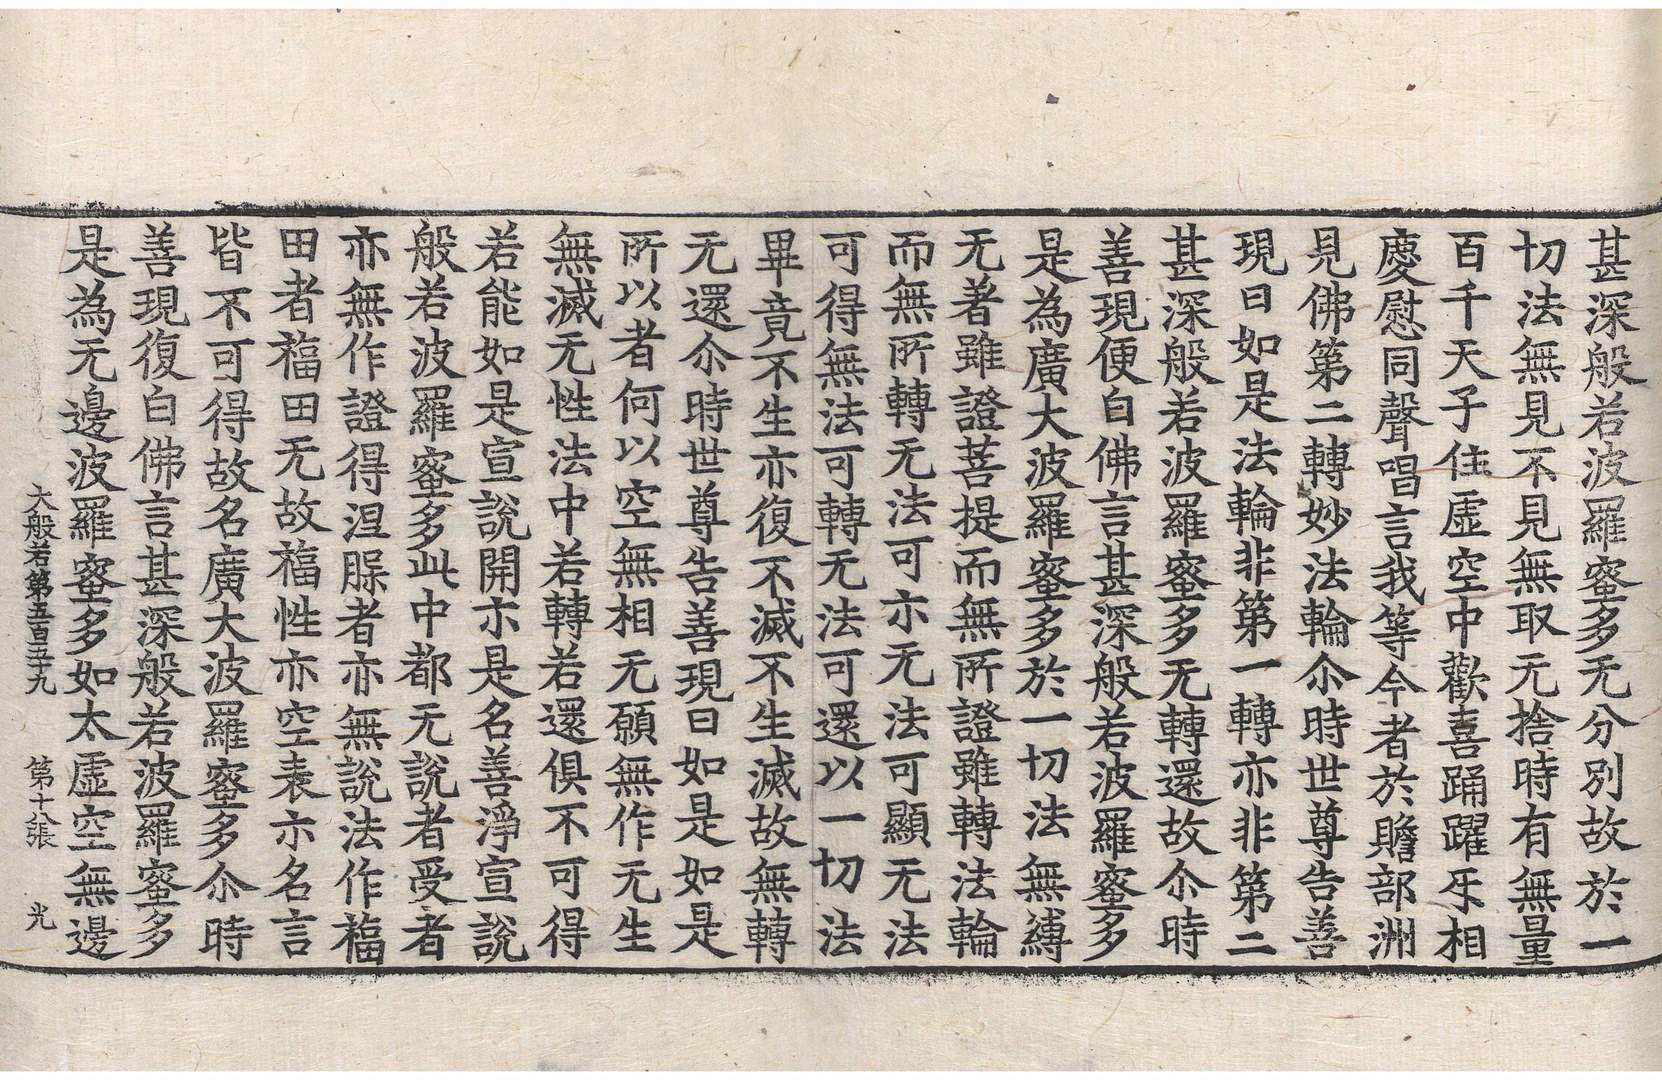 甚深般若波羅蜜多无分別故於一
切法無見不見無取无捨時有無量
百千天子住虛空中歡喜踊躍互相
慶慰同聲唱言我等今者於贍部洲
見佛第二轉妙法輪尒時世尊告善
現曰如是法輪非第一轉亦非第二
甚深般若波羅蜜多无轉還故尒時
善現便白佛言甚深般若波羅蜜多
是為廣大波羅蜜多於一切法無縛
无著雖證菩提而無所證雖轉法輪
而無所轉无法可示无法可顯无法
可得無法可轉无法可還以一切法
畢竟不生亦復不滅不生滅故無轉
无還尒時世尊告善現曰如是如是
所以者何以空無相无願無作无生
無滅无性法中若轉若還俱不可得
若能如是宣說開示是名善淨宣說
般若波羅蜜多此中都无說者受者
亦無作證得涅槃者亦無說法作福
田者福田无故福性亦空表示名言
皆不可得故名廣大波羅蜜多尒時
善現復白佛言甚深般若波羅蜜多
是為无邊波羅蜜多如太虛空無邊
大般若第五百五十九 第十八張 光